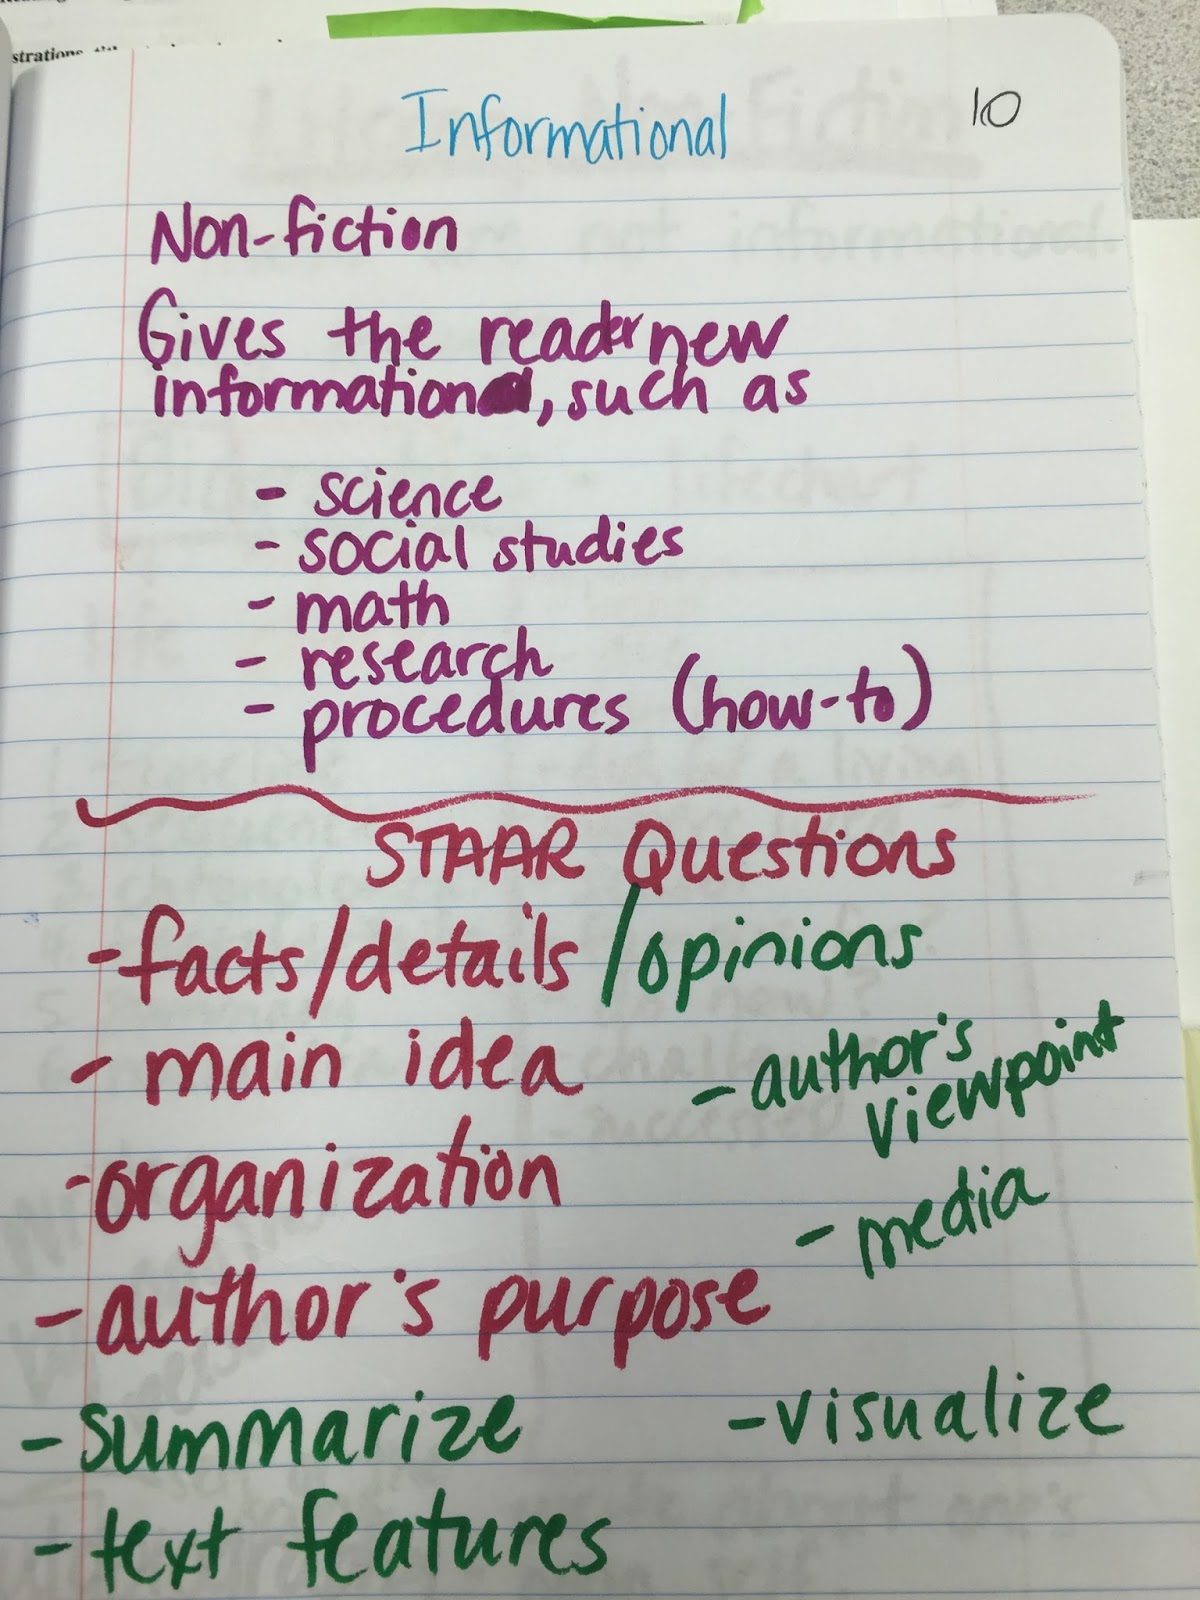 strations,
Informational
10
Non-fiction
Gives the reader new
information, such as
- science
- social studies
- math
- research
- procedures (how-to)
STAAR Questions
- facts/details/opinions
- main idea
- author's viewpoint
- organization
- media
- author's purpose
- summarize
- visualize
- text features